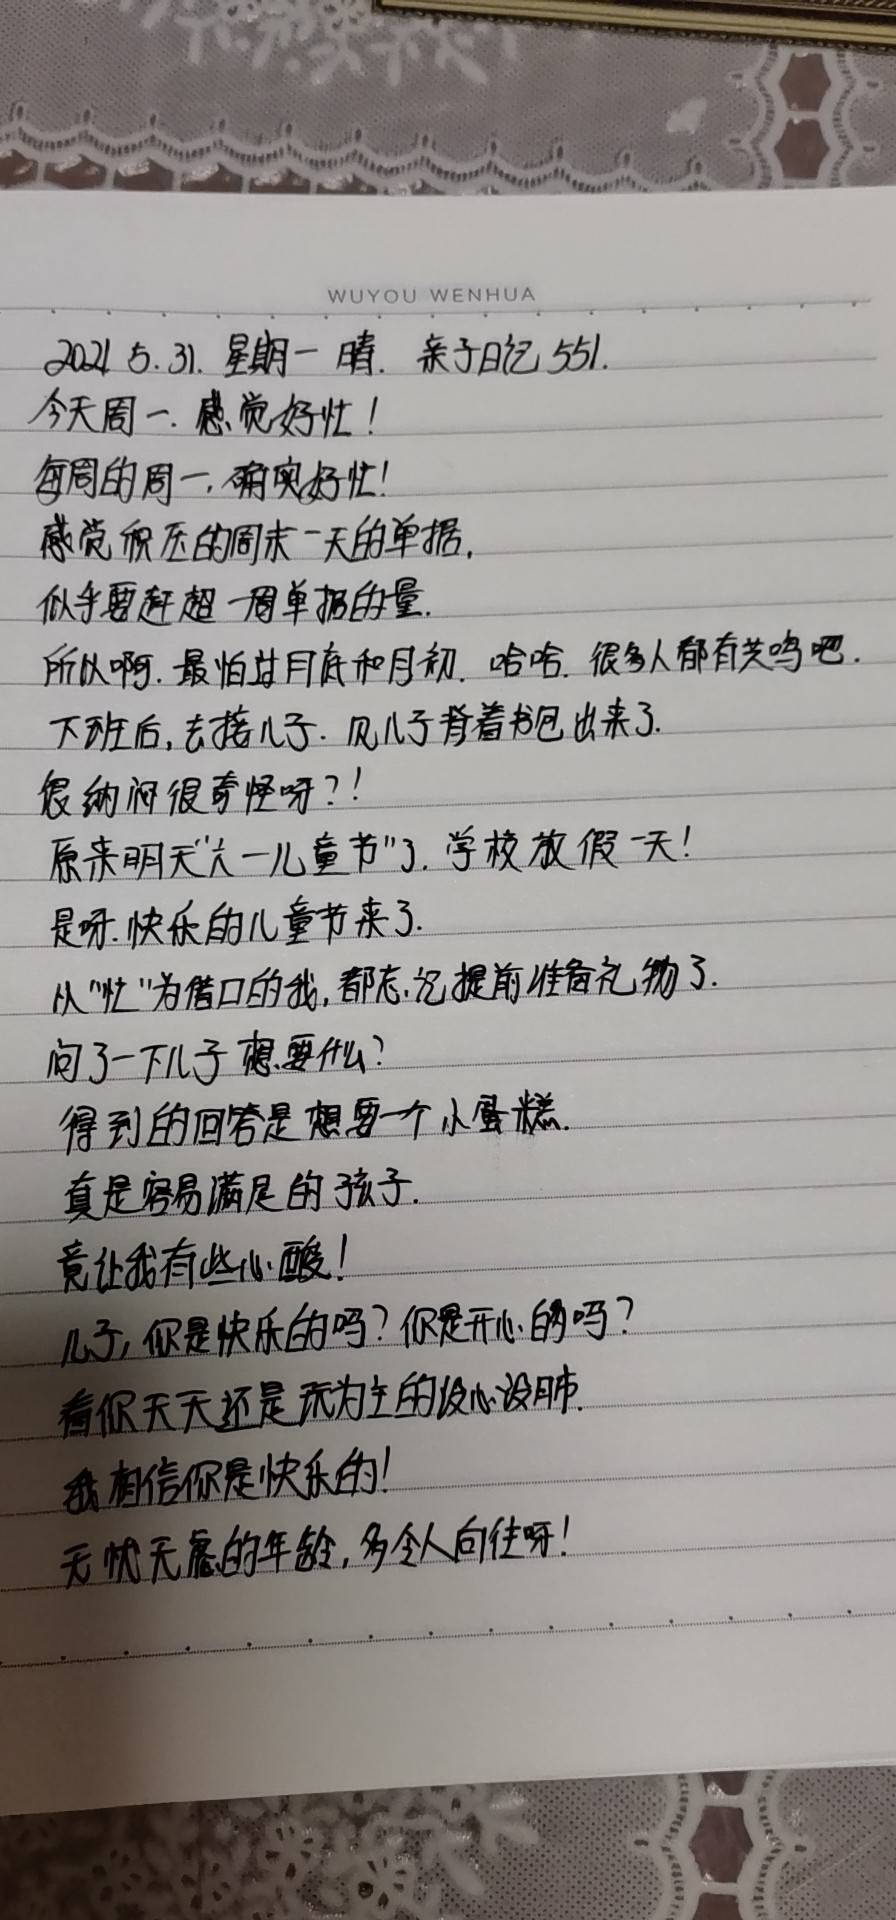 WUYOU WENHUA
2021 5.31. 星期一 晴. 亲子日记 551.
今天周一. 感觉好忙！
每周的周一, 确实好忙！
感觉积压的周末一天的单据,
似乎要赶超一周单据的量.
所以啊. 最怕过月底和月初. 哈哈. 很多人都有共鸣吧.
下班后, 去接儿子. 见儿子背着书包出来了.
很纳闷很奇怪呀？！
原来明天“六一儿童节”了. 学校放假一天！
是呀. 快乐的儿童节来了.
以“忙”为借口的我, 都忘记提前准备礼物了.
问了一下儿子想要什么？
得到的回答是想要一个小蛋糕.
真是容易满足的孩子.
竟让我有些心酸！
儿子, 你是快乐的吗？你是开心的吗？
看你天天还是玩为主的没心没肺.
我相信你是快乐的！
无忧无虑的年龄, 多令人向往呀！